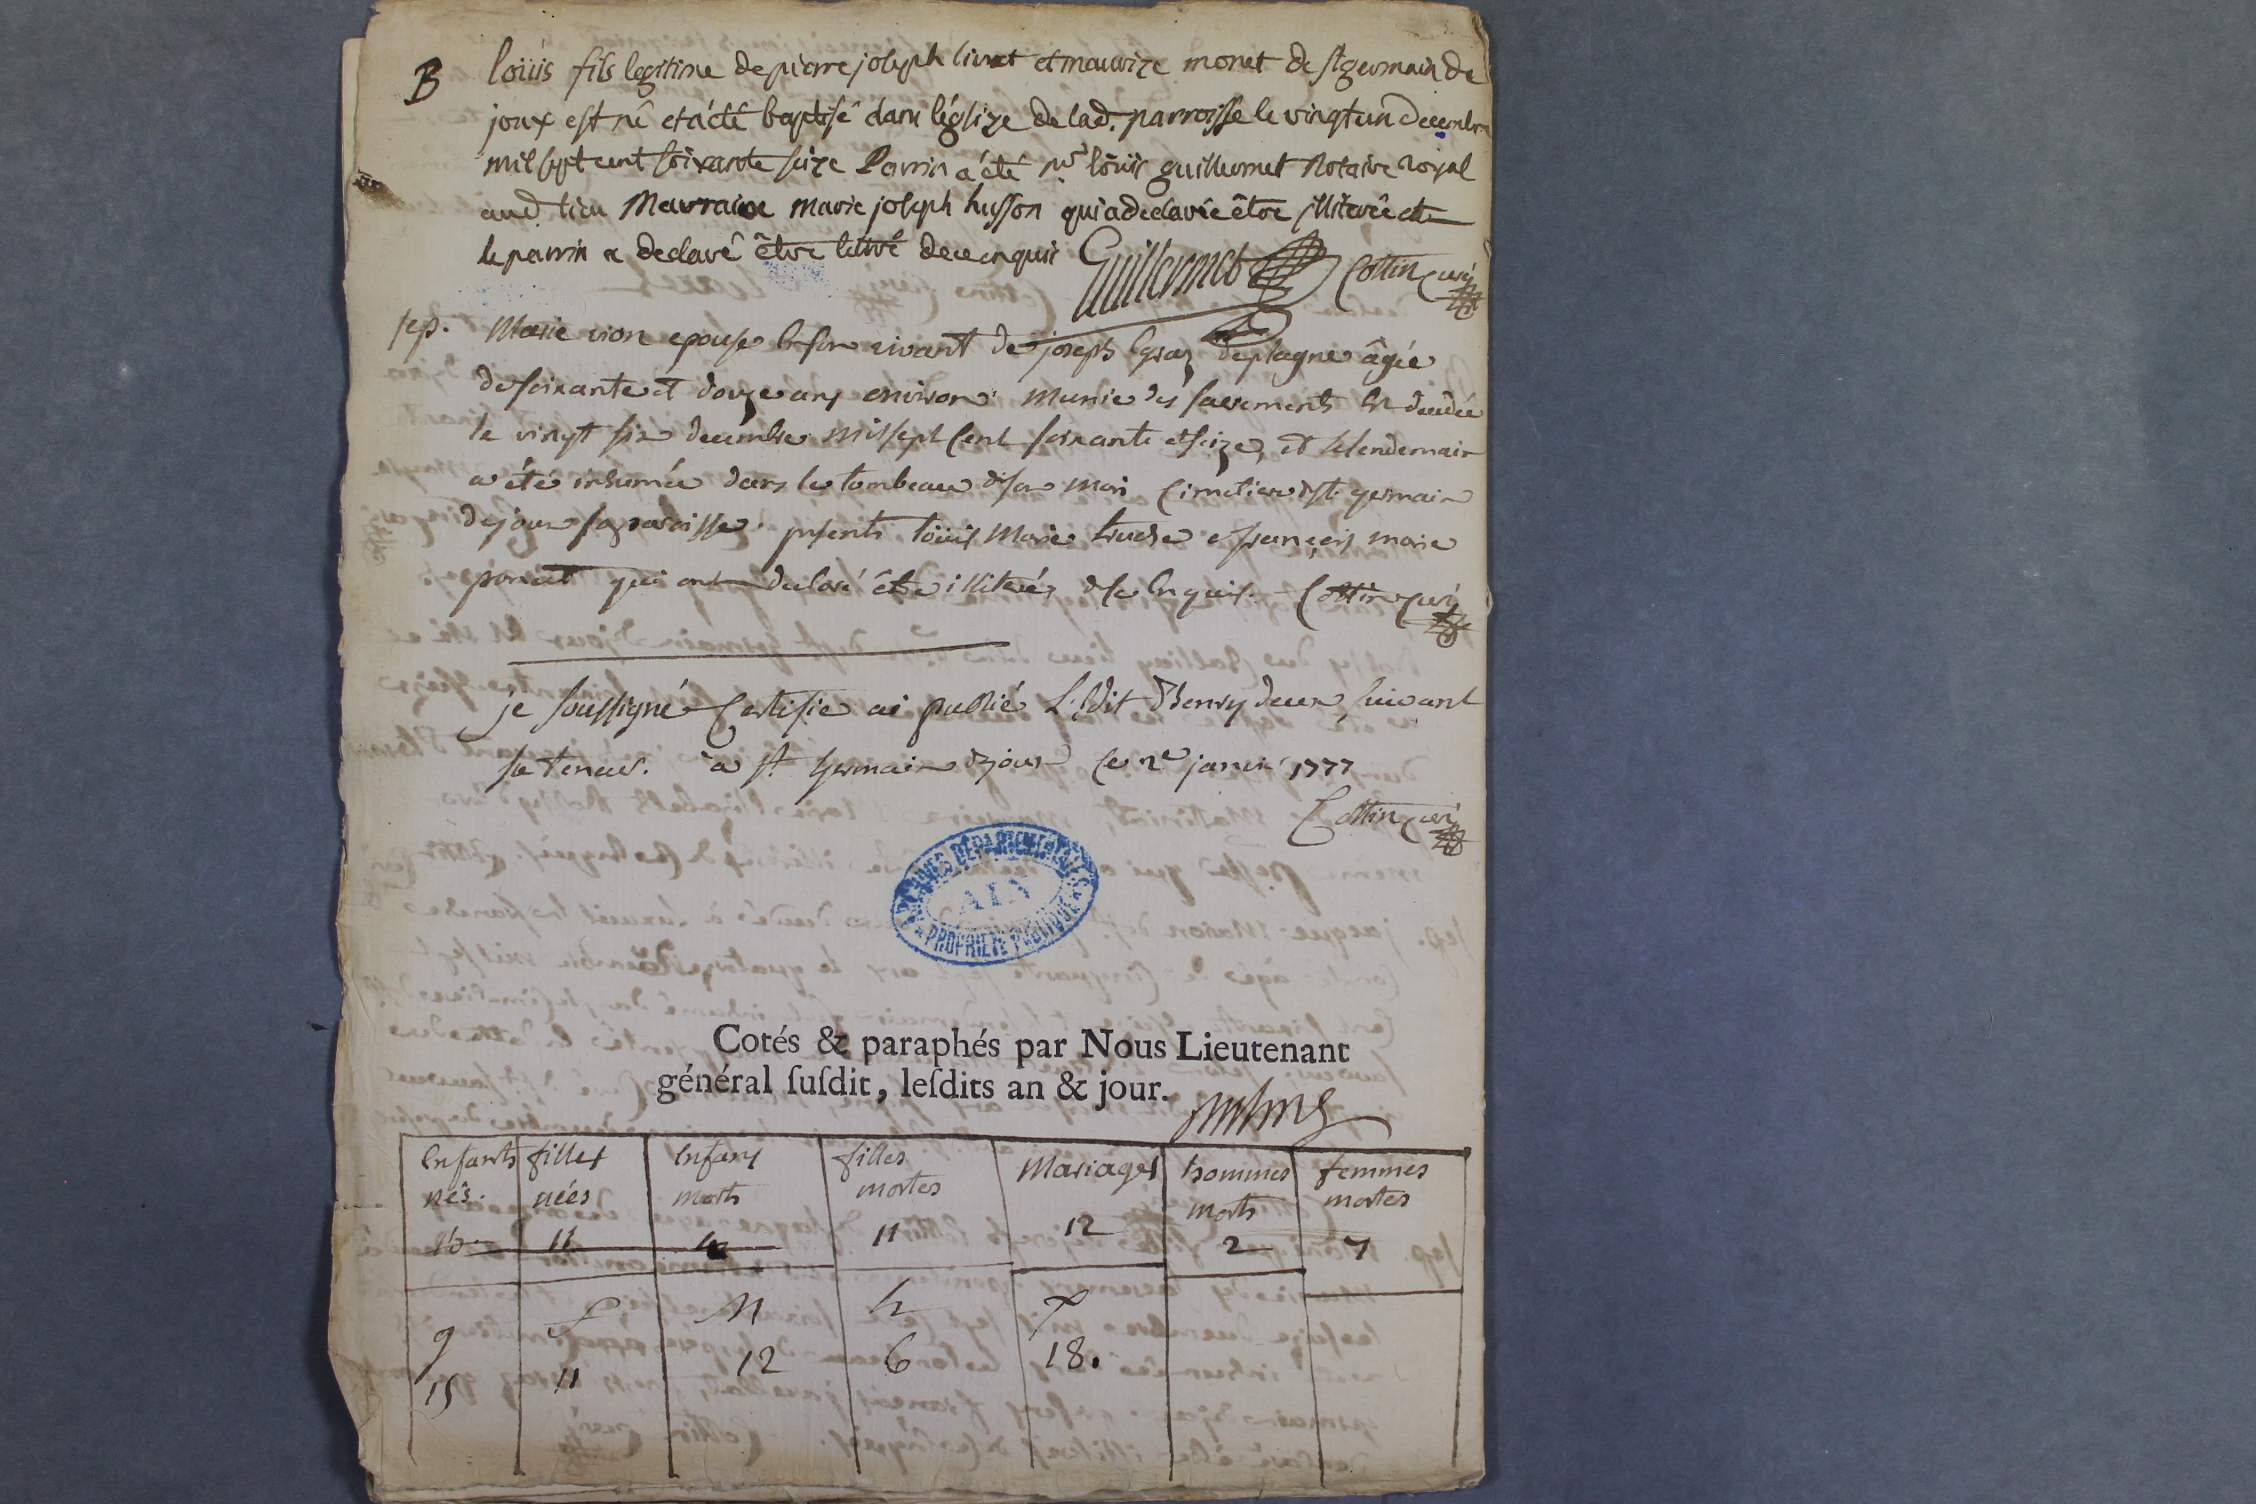 B
loüis fils legitime de pierre joseph livet et maurize monet de st germain de
joux est né et a été baptisé dans léglize de lad. parroisse le vingt un Decembre
mil sept cent soixante seize Parrin a été Mr loüis guillermet Notaire royal
aud. lieu Marraine marie joseph husson qui a declarée être illiterée et
le parrin a declaré être lettré de ce enquis Guillermet Cottin curé
sep.
Marie vion epouse en son vivant de joseph deplagne âgée
de soixante et douze ans environ munie des sacrements est decedée
le vingt six decembre mil sept Cent soixante et seize, et le lendemain
a été inhumée dans le tombeau de son mari cimetiere de st. germain
de joux sa paroisse. presents loüis Marie et françois marie
poncet qui ont declaré être illiterés de ce Enquis. Cottin curé
je soussigné Certifie ai publié L'Edit d'henry deux suivant
sa teneur. a st. germain de joux Ce 2e janvier 1777
Cottin curé
ARCHIVES DÉPARTEMENTALES
AIN
PROPRIÉTÉ PUBLIQUE
Cotés & paraphés par Nous Lieutenant
général ſuſdit, leſdits an & jour.
Enfants filles Enfans filles Mariages hommes femmes
nés. nées morts mortes morts mortes
11 11 12 2 7
g f M h f
15 11 12 6 18.